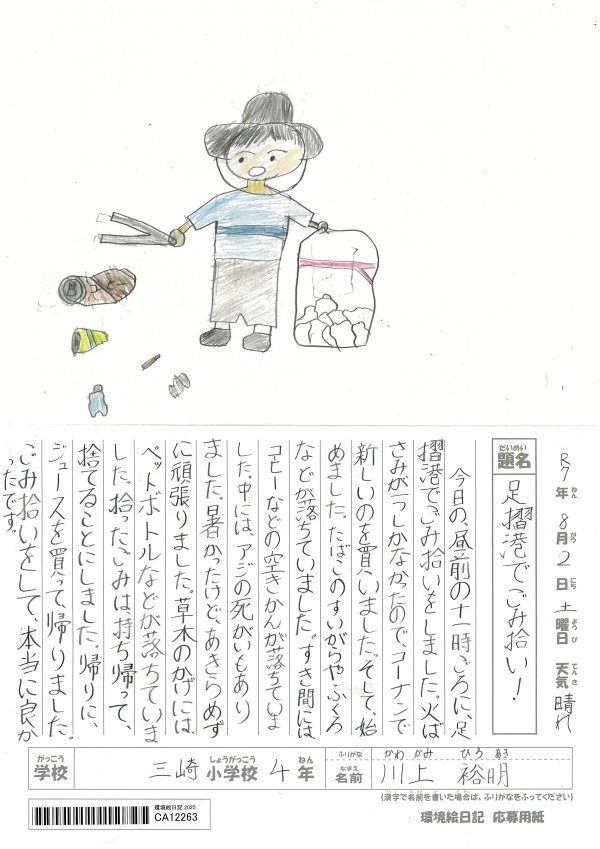 コーヒー
R7年 8月 2日 土曜日 天気 晴れ
ねん がつ にち ようび てんき
だいめい
題名
足摺港でごみ拾い!
今日の、昼前の十一時ごろに、足
摺港でごみ拾いをしました。火ば
さみが一つしかなかったので、コーナンで
新しいのを買いました。そして、始
めました。たばこのすいがらや、ふくろ
などが落ちていました。すき間には
コヒーなどの空きかんが落ちていま
した。中には、アジの死がいもあり
ました。暑かったけど、あきらめず
に頑張りました。草木のかげには、
ペットボトルなどが落ちていま
した。拾ったごみは、持ち帰って、
捨てることにしました。帰りに、
ジュースを買って、帰りました。
ごみ拾いをして、本当に良か
ったです。
がっこう しょうがっこう ねん ふりがな かわ かみ ひろ あき
学校 三崎 小学校 4年 なまえ 名前 川上 裕明
(漢字で名前を書いた場合は、ふりがなをふってください)
環境絵日記 2025
CA12263
環境絵日記 応募用紙